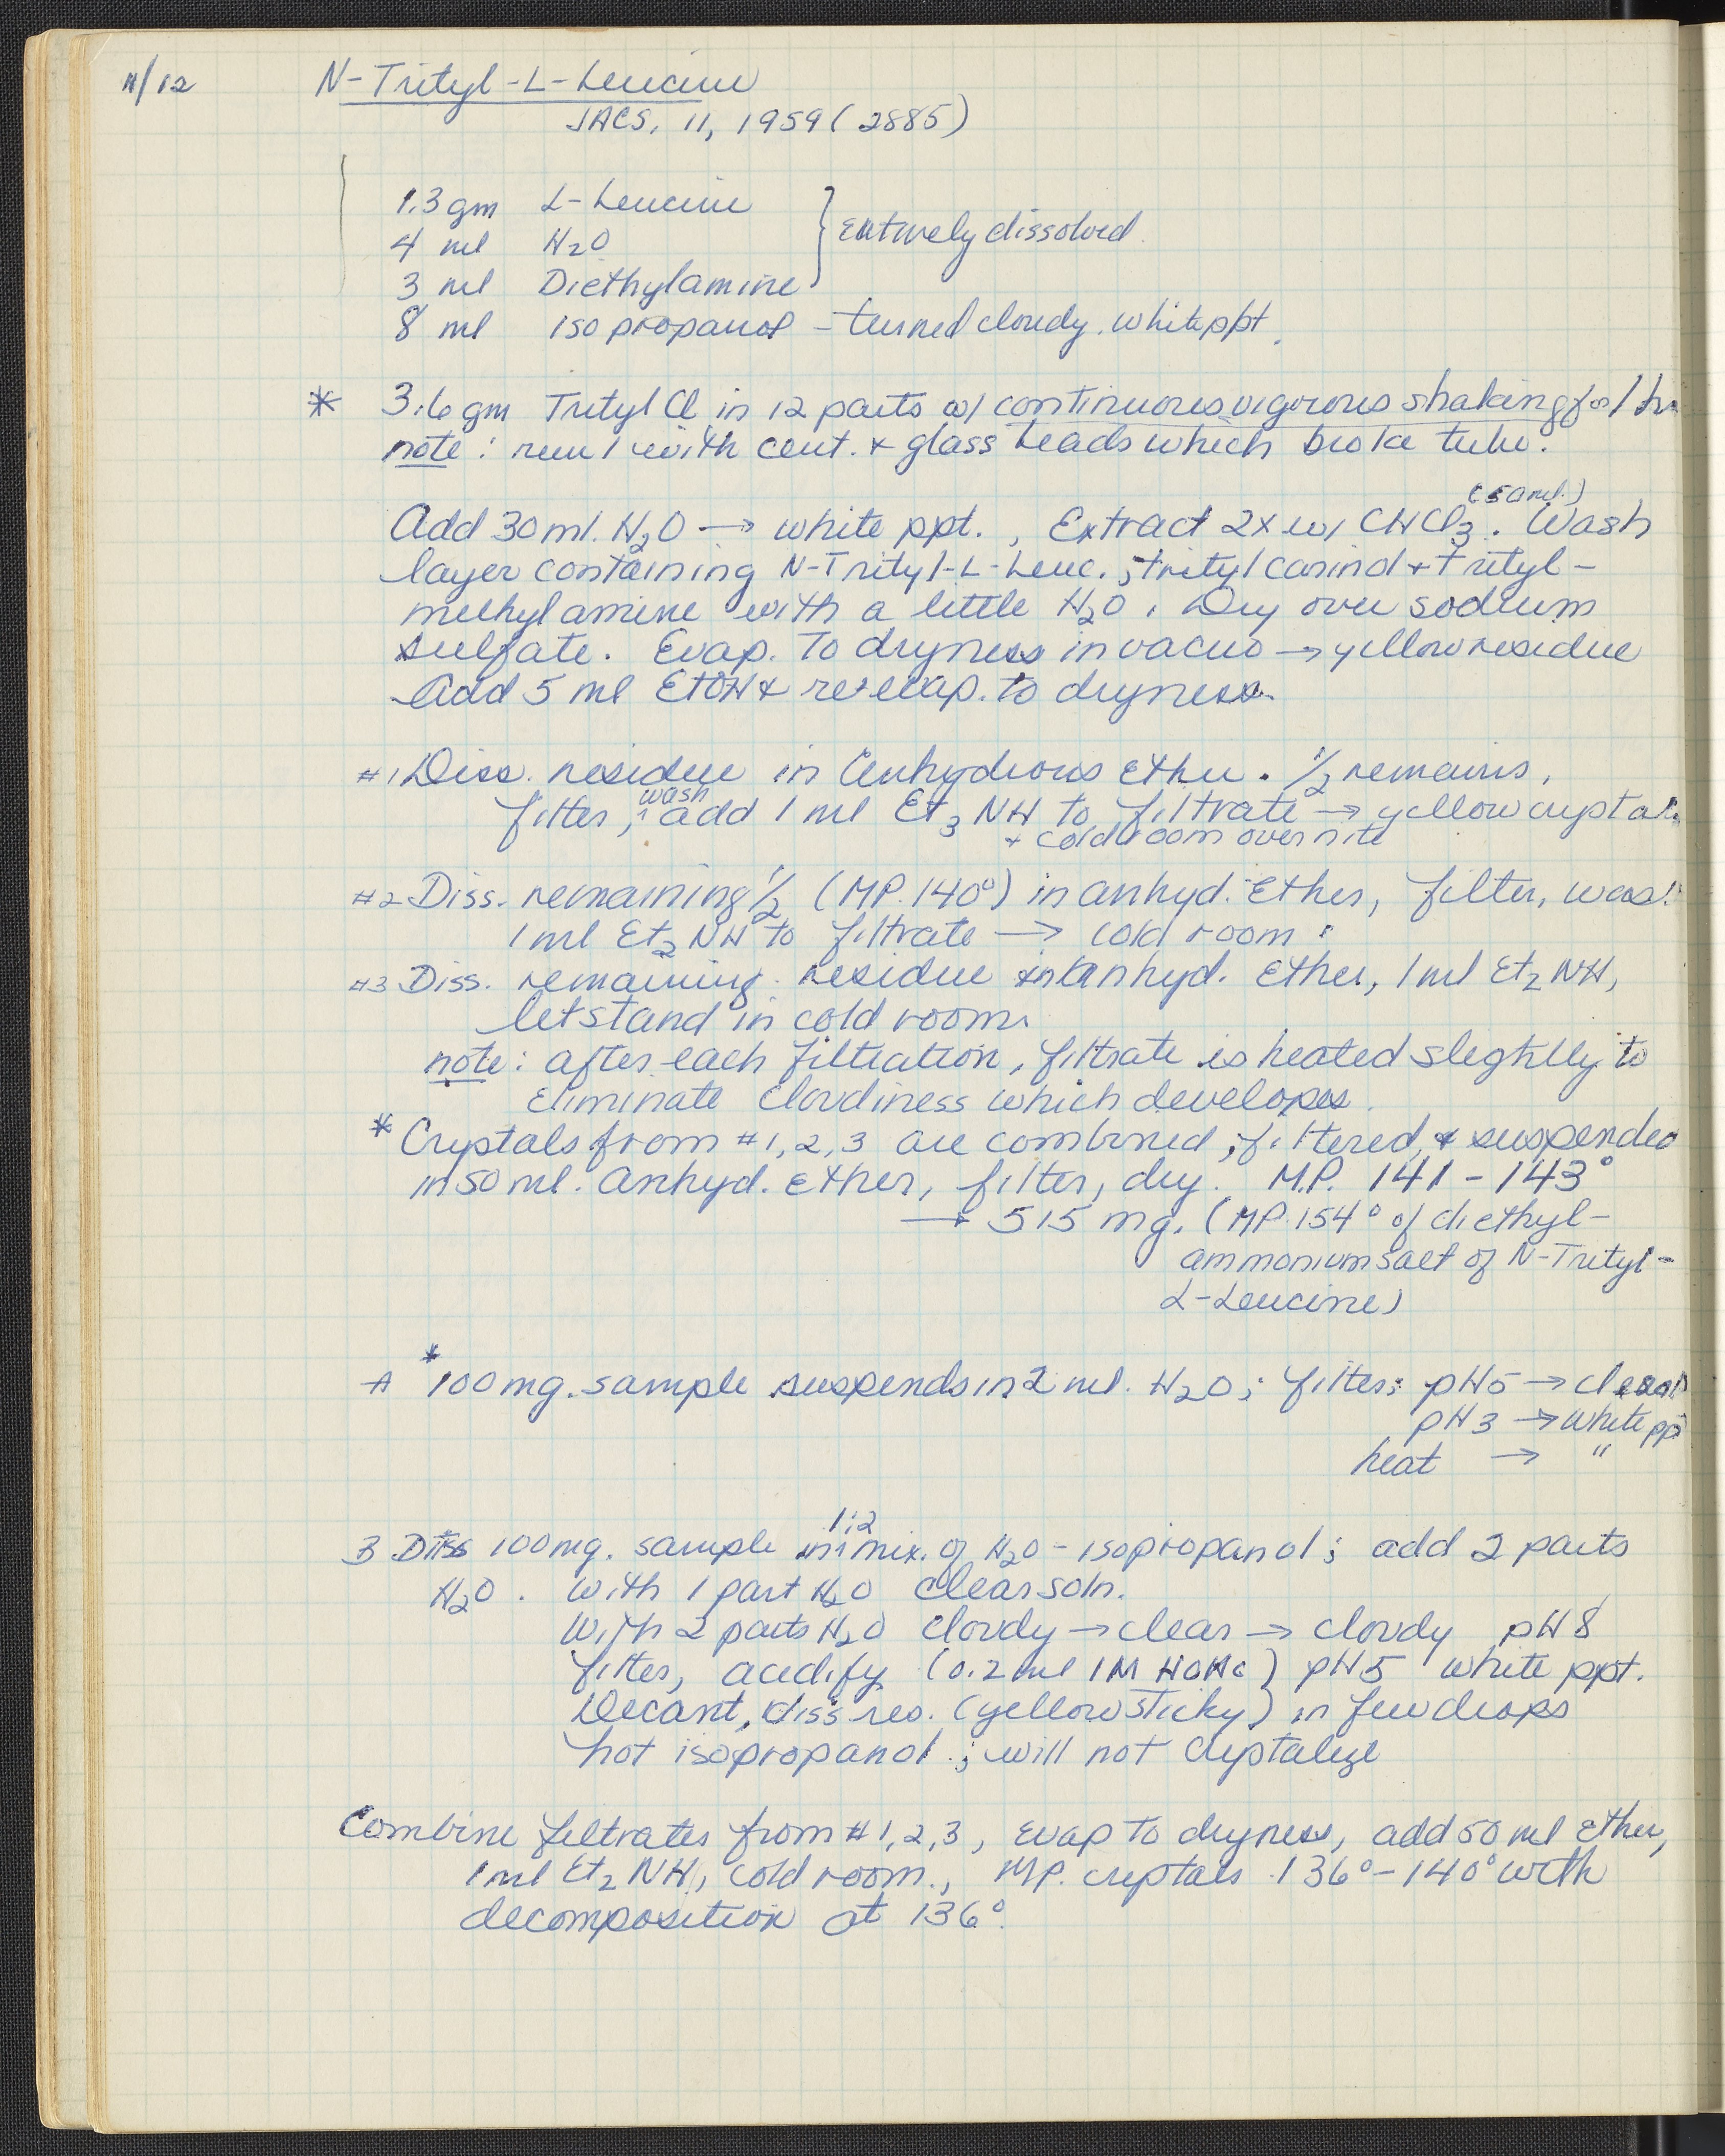 11/12 N-Trityl-L-Leucine
JACS, 11, 1959 (2885)
1.3 gm L-Leucine
4 ml H2O } entirely dissolved
3 ml Diethylamine
8 ml isopropanol - turned cloudy. white ppt.
* 3.6 gm Trityl Cl in 12 parts w/ continuous vigorous shaking for 1 hr
note: run 1 with cent. & glass beads which broke tube.
(50 ml.)
Add 30 ml. H2O → white ppt. , Extract 2x w/ CHCl3. Wash
layer containing N-Trityl-L-Leuc. ; trityl carinol + Trityl-
methylamine with a little H2O. Dry over sodium
sulfate. Evap. to dryness in vacuo → yellow residue
Add 5 ml EtOH & re-evap. to dryness.
#1 Diss. residue in Anhydrous Ether. 1/2 remains.
filter, wash, add 1 ml Et3 NH to filtrate → yellow crystals
+ cold room over nite
#2 Diss. remaining 1/2 (MP. 140°) in anhyd. Ether, filter, wash
1 ml Et2 NH to filtrate → cold room.
#3 Diss. remaining residue in anhyd. Ether, 1 ml Et2 NH,
let stand in cold room.
note: after each filtration, filtrate is heated slightly to
eliminate cloudiness which developes.
* Crystals from #1, 2, 3 are combined, filtered, & suspended
in 50 ml. anhyd. ether, filter, dry. M.P. 141-143°
→ 515 mg. (MP. 154° of diethyl-
ammonium salt of N-Trityl-
L-Leucine)
*
A 100 mg. sample suspends in 2 ml. H2O; filter; pH5 → clear
pH 3 → white ppt
heat → "
1:2
B Diss 100 mg. sample in mix. of H2O - isopropanol; add 2 parts
H2O. with 1 part H2O clear soln.
With 2 parts H2O cloudy → clear → cloudy pH 8
filter, acidify (0.2 ml 1M HOAc) pH5 white ppt.
Decant, diss res. (yellow sticky) in few drops
hot isopropanol; will not crystalize
Combine filtrates from #1, 2, 3, evap to dryness, add 50 ml Ether,
1 ml Et2 NH, cold room., MP. crystals 136°-140° with
decomposition at 136°.